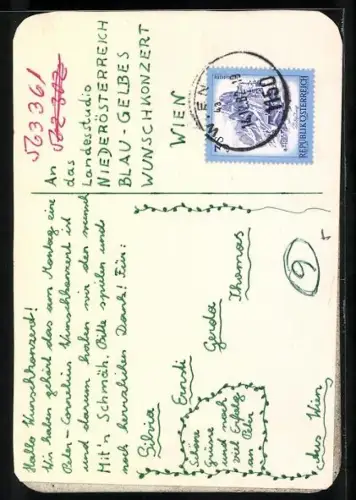 Hallo Wunschkonzert!
Wir haben gehört das am Montag eine
Peter-Cornelius Wunschkonzert ist
und darum haben wir den
Mit'n Schmäh. Bitte spielen und
noch herzlichen Dank! Für:
Silvia
Erndi
Gerda
Thomas
Schöne
Grüsse
und noch
viel Erfolg
an Peter
Aus Wien
563361
An
das
Landesstudio
NIEDERÖSTERREICH
BLAU-GELBES
WUNSCHKONZERT
WIEN
WIEN
REPUBLIK ÖSTERREICH
9